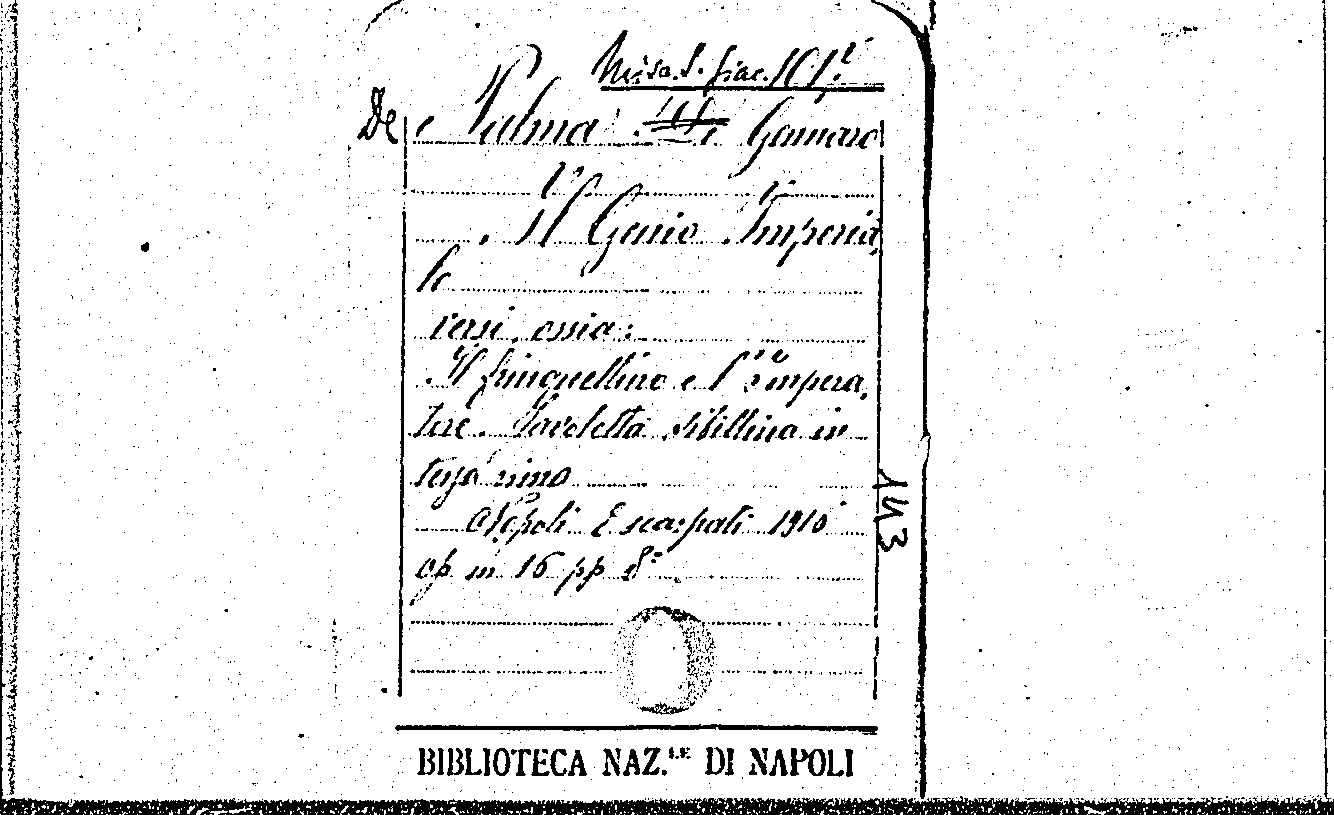 Misc. S. Giac. 101.
De Palma Gennaro
Il Genio Imperia
le
versi, ossia:
Il fringuellino e l'impera,
tore. Favoletta sibillina in
terza rima
Napoli Escarpati 1910
op in 16 pp 8
143
BIBLIOTECA NAZ.LE DI NAPOLI